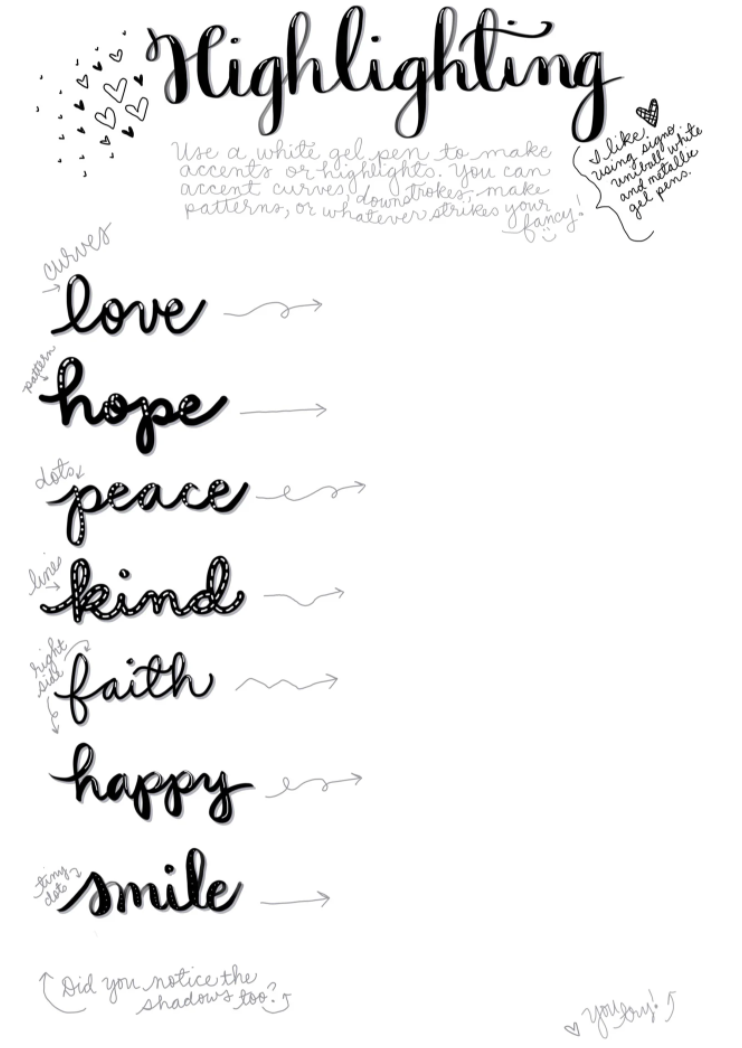 Highlighting
Use a white gel pen to make
accents or highlights. You can
accent curves, downstrokes, make
patterns, or whatever strikes your
fancy!
I like
using signo
uniball white
and metallic
gel pens.
curves
love
pattern
hope
dots
peace
lines
kind
right
side
faith
happy
tiny
dots
smile
Did you notice the
shadows too?
you try!